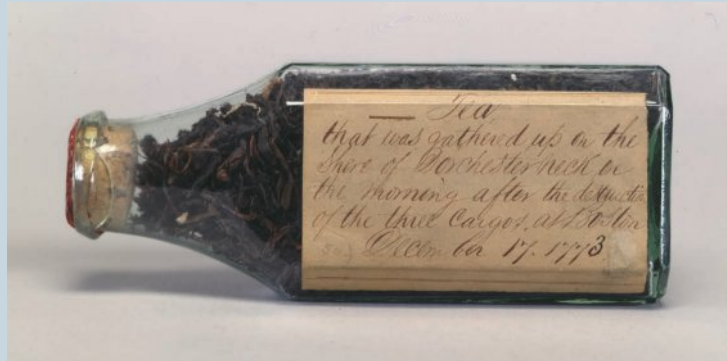 Tea
that was gathered up on the
shore of Dorchester neck on
the morning after the destruction
of the three Cargos, at Boston
December 17. 1773